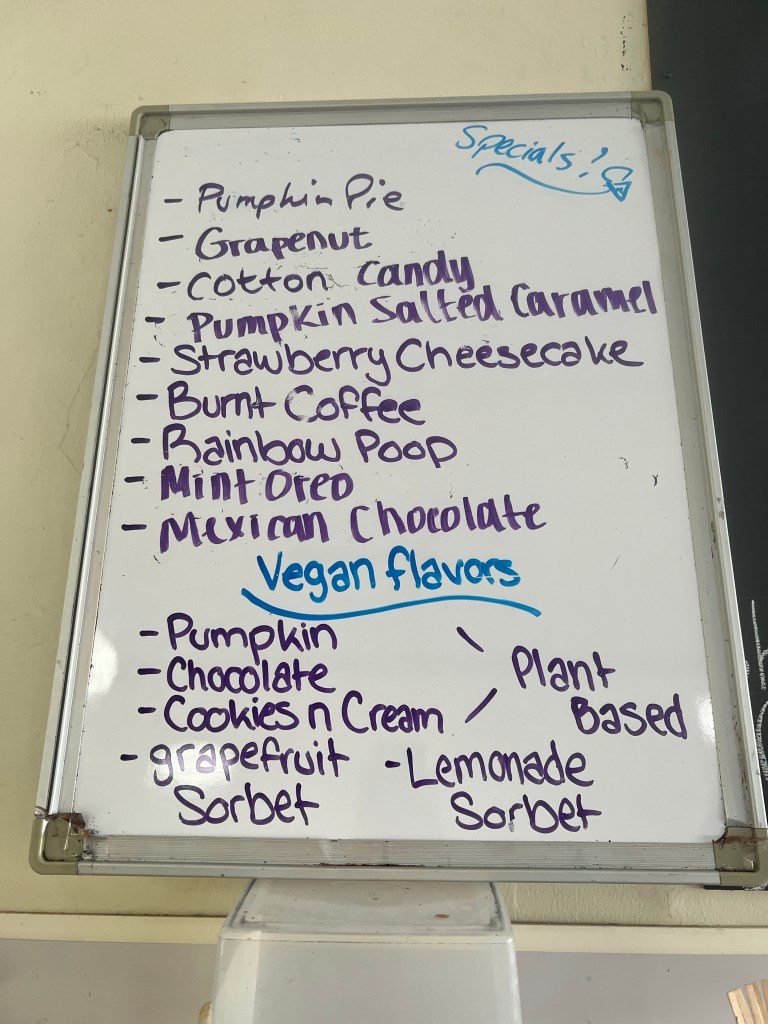 Specials!
- Pumpkin Pie
- Grapenut
- Cotton Candy
- Pumpkin Salted Caramel
- Strawberry Cheesecake
- Burnt Coffee
- Rainbow Poop
- Mint Oreo
- Mexican Chocolate
Vegan flavors
- Pumpkin
- Chocolate
- Cookies n Cream
Plant
Based
- grapefruit
Sorbet
- Lemonade
Sorbet